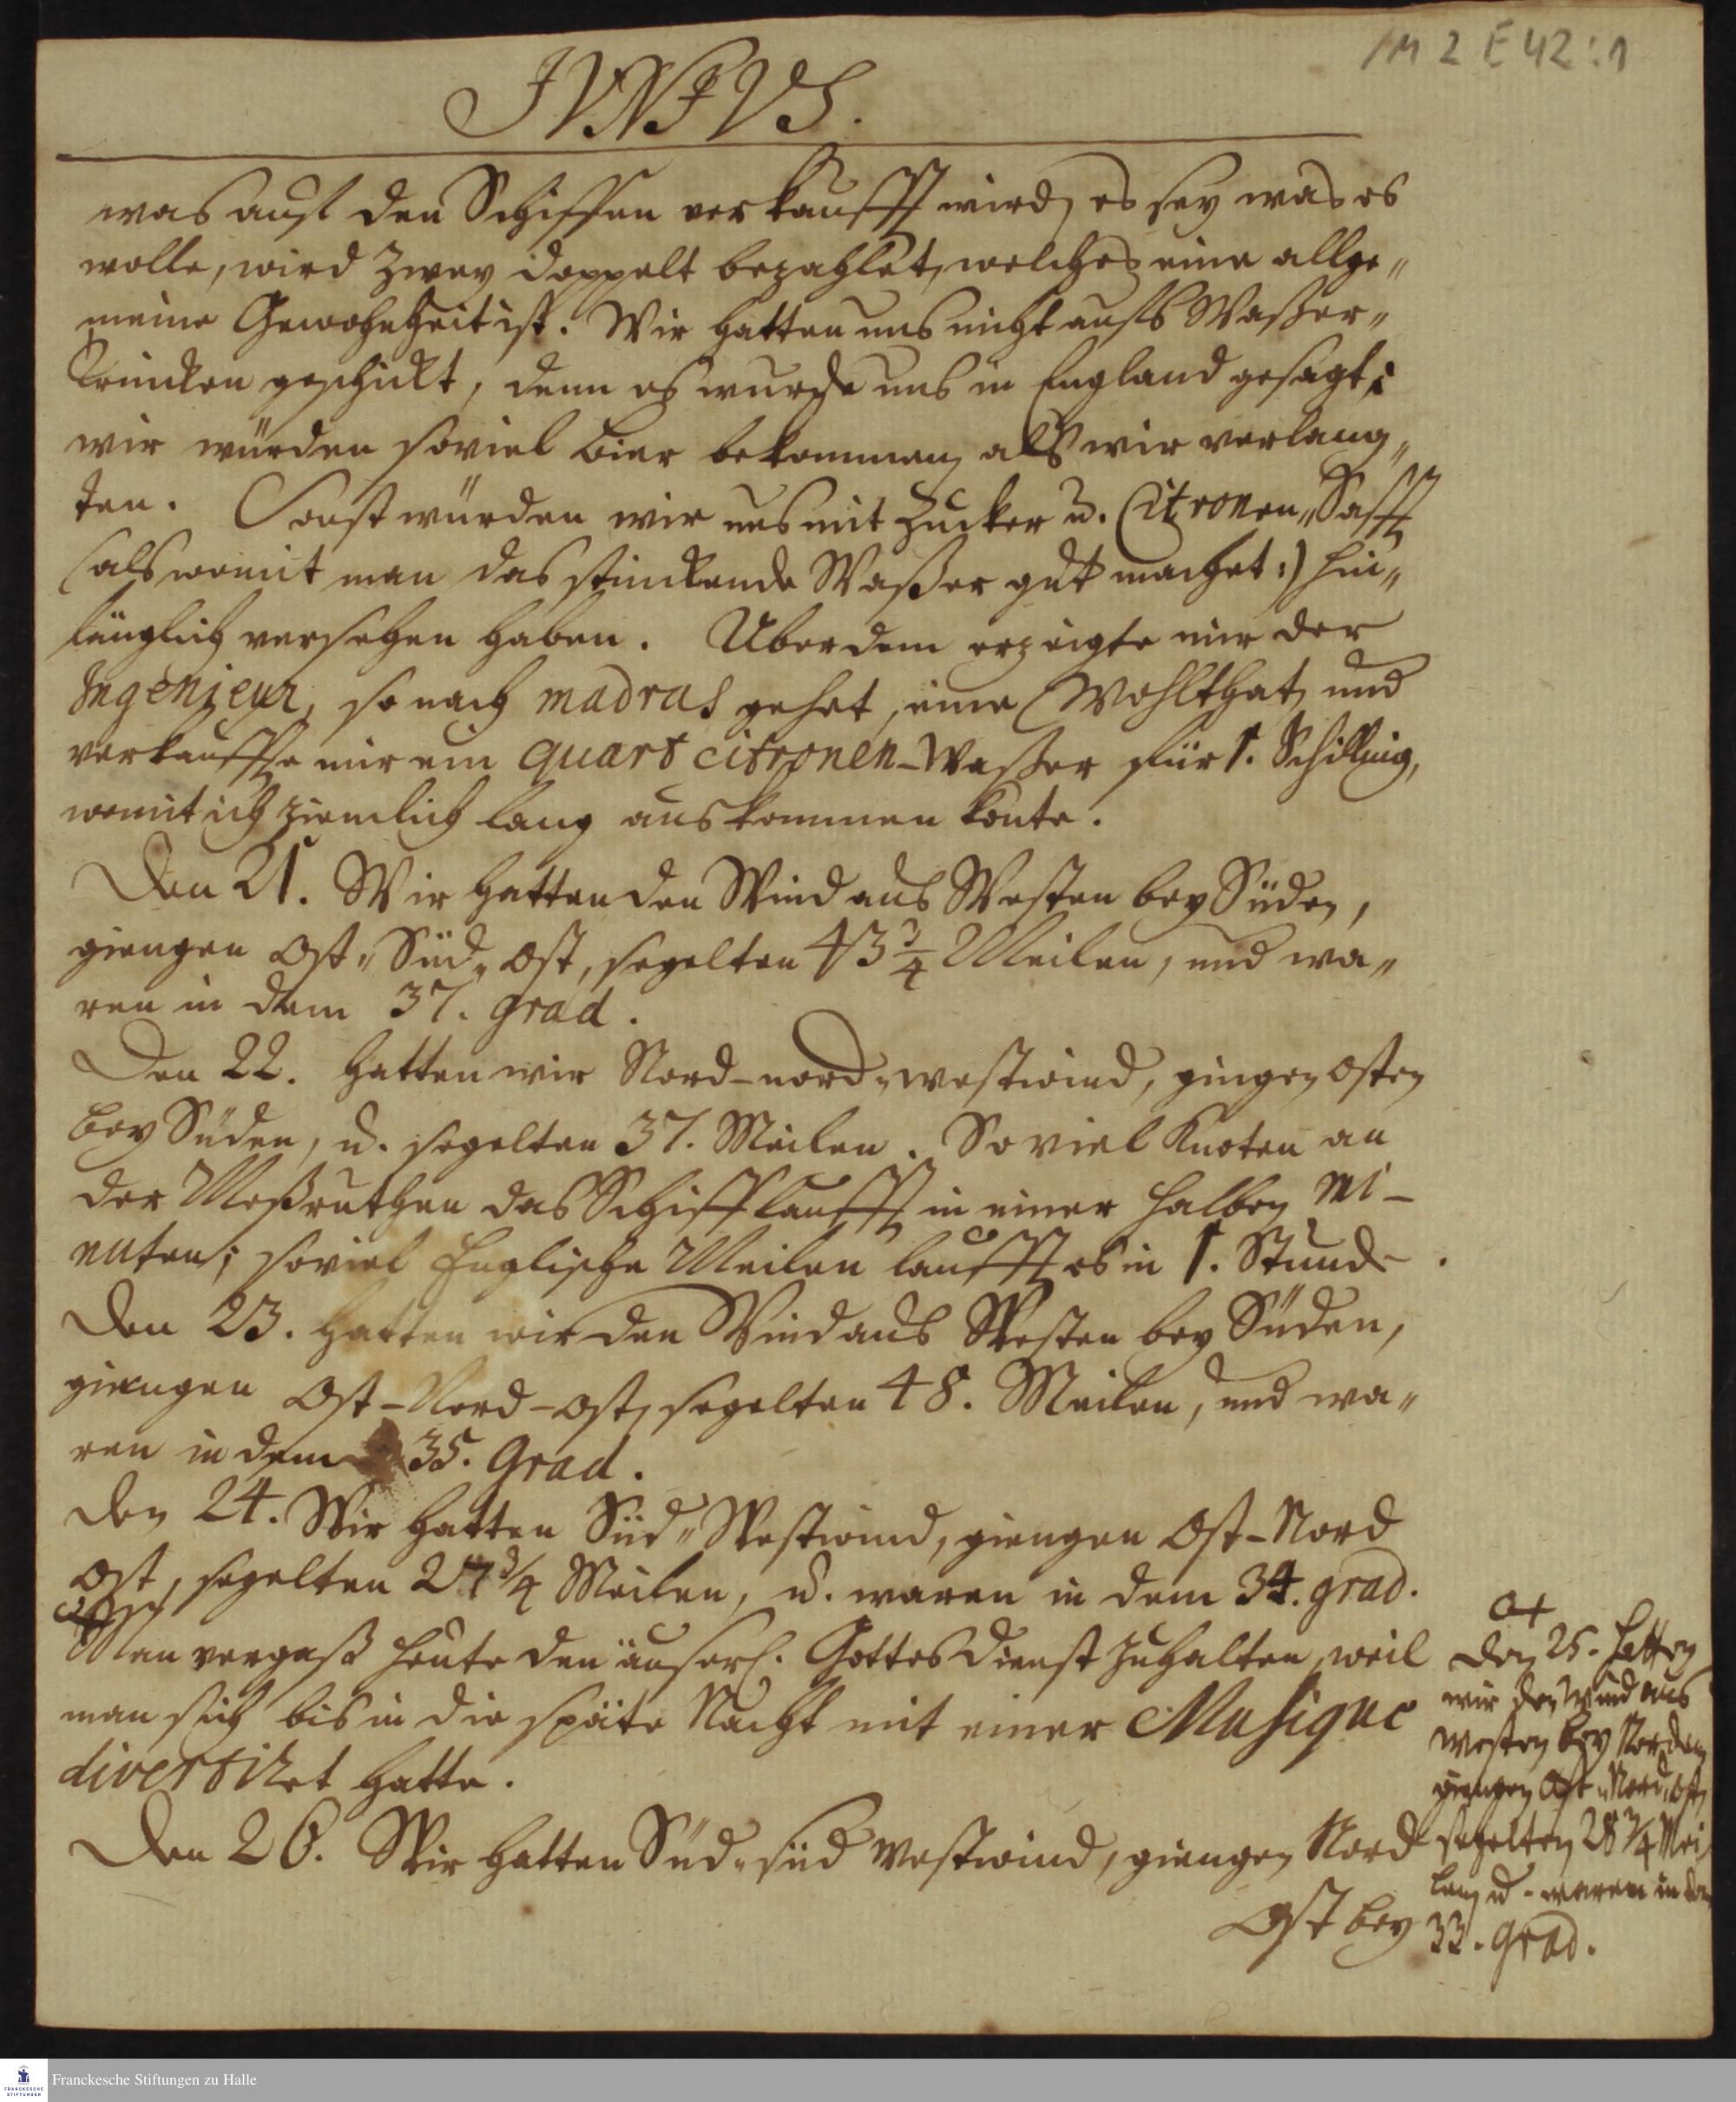 1M 2 E 42 : 1
JVNJVS.
was auf den Schiffen verkaufft wird, es sey was es
wolle, wird zwey doppelt bezahlet, welches eine allge„
meine Gewohnheit ist. Wir hatten uns nicht aufs Waßer„
trincken geschickt, denn es wurde uns in England gesagt;
wir würden soviel bier bekommen, als wir verlang„
ten. Sonst würden wir uns mit Zucker u. Citronen„Safft
(als womit man das stinckende Waßer gut machet:) hin„
länglich versehen haben. Uberdem erzeigte mir der
Ingenieur, so nach madras gehet, eine Wohlthat, und
verkauffte mir ein quart citronen-Waßer für 1. Schilling,
womit ich ziemlich lang auskommen konte.
Den 21. Wir hatten den Wind aus Westen bey Süden,
giengen Ost„Süd„Ost, segelten 43 3/4 Meilen, und wa„
ren in dem 37. grad.
Den 22. hatten wir Nord-nord„westwind, gingen Osten
bey Süden, u. segelten 37. Meilen. So viel Knoten an
der Meßruthen das Schiff laufft in einer halben Mi-
nuten; soviel Englische Meilen laufft es in 1. Stunde.
Den 23. hatten wir den Wind aus Westen bey Süden,
giengen Ost-Nord-Ost, segelten 48. Meilen, und wa„
ren in dem 35. Grad.
Den 24. Wir hatten Süd„Westwind, giengen Ost-Nord
Ost, segelten 27 3/4 Meilen, u. waren in dem 34. grad.
Man vergaß heute den äuserl. Gottesdienst zuhalten, weil
man sich bis in die späte Nacht mit einer Musique
divertiret hatte.
Den 26. Wir hatten Süd„süd Westwind, giengen Nord
Ost bey
Den 25. hatten
wir den Wind aus
Westen bey Norden
giengen Ost„Nord„Ost,
segelten 28 3/4 Mei
len, u. waren in dem
33. Grad.
FRANCKESCHE
STIFTUNGEN
Franckesche Stiftungen zu Halle